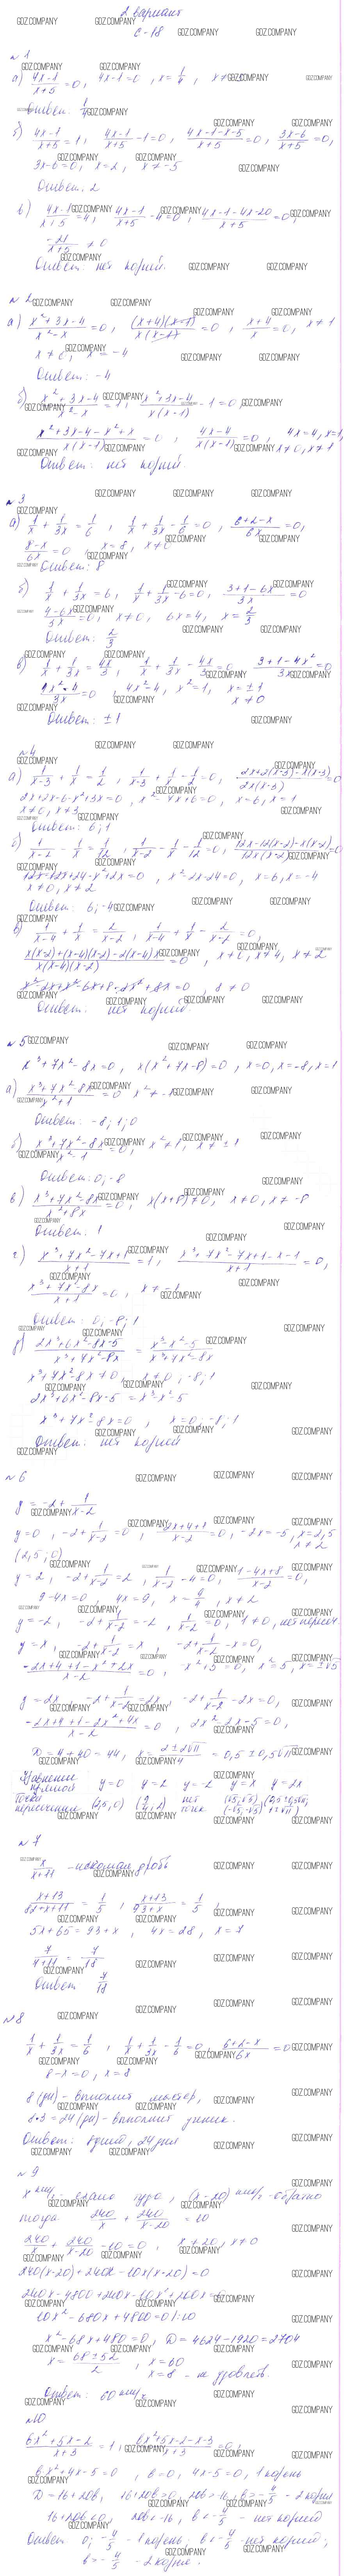 2 вариант
С-18
№1
а) (4x-1)/(x+5) = 0, 4x-1=0, x = 1/4, x≠
Ответ: 1/4
б) (4x-1)/(x+5) = 1, (4x-1)/(x+5) - 1 = 0, (4x-1-x-5)/(x+5) = 0, (3x-6)/(x+5) = 0,
3x-6=0, x=2, x≠-5
Ответ: 2
в) (4x-1)/(x+5) = 4, (4x-1)/(x+5) - 4 = 0, (4x-1-4x-20)/(x+5) = 0,
-21/(x+5) ≠ 0
Ответ: нет корней.
№2
а) (x²+3x-4)/(x²-x) = 0, (x+4)(x-1)/(x(x-1)) = 0, (x+4)/x = 0, x≠1
x≠0, x=-4
Ответ: -4
б) (x²+3x-4)/(x²-x) = 1, (x²+3x-4)/(x(x-1)) - 1 = 0,
(x²+3x-4-x²+x)/(x(x-1)) = 0, (4x-4)/(x(x-1)) = 0, 4x=4, x=1,
x≠0, x≠1
Ответ: нет корней.
№3
а) 1/x + 1/3x = 1/6, 1/x + 1/3x - 1/6 = 0, (6+2-x)/6x = 0,
(8-x)/6x = 0, x=8, x≠0
Ответ: 8
б) 1/x + 1/3x = 6, 1/x + 1/3x - 6 = 0, (3+1-6x)/3x = 0
(4-6x)/3x = 0, x≠0, 6x=4, x = 2/3
Ответ: 2/3
в) 1/x + 1/3x = 4x/3, 1/x + 1/3x - 4x/3 = 0, (3+1-4x²)/3x = 0
4x²=4, x²=1, x=±1
x≠0
Ответ: ±1
№4
а) 1/(x-3) + 1/x = 1/2, 1/(x-3) + 1/x - 1/2 = 0, (2x+2(x-3)-x(x-3))/(2x(x-3)) = 0
2x+2x-6-x²+3x=0, x=6, x=1
x≠0, x≠3
Ответ: 6; 1
б) 1/(x-2) - 1/x = 1/12, 1/(x-2) - 1/x - 1/12 = 0, (12x-12(x-2)-x(x-2))/(12x(x-2)) = 0
12x-12x+24-x²+2x=0, x²-2x-24=0, x=6, x=-4
x≠0, x≠2
Ответ: 6; -4
в) 1/(x-4) + 1/x = 2/(x-2), 1/(x-4) + 1/x - 2/(x-2) = 0,
(x(x-2)+(x-4)(x-2)-2(x-4)x)/(x(x-4)(x-2)) = 0, x≠0, x≠4, x≠2
x²-2x+x²-6x+8-2x²+8x=0, 8≠0
Ответ: нет корней.
№5
x³+7x²-8x=0, x(x²+7x-8)=0, x=0, x=-8, x=1
а) (x³+7x²-8x)/(x²+1) = 0 x²≠-1
Ответ: -8; 1; 0
б) (x³+7x²-8x)/(x²-1) = 0, x²≠1, x≠±1
Ответ: 0; -8
в) (x³+7x²-8x)/(x²+8x) = 0, x(x+8)≠0, x≠0, x≠-8
Ответ: 1
г) (x³+7x²-7x+1)/(x+1) = 1, (x³+7x²-7x+1-x-1)/(x+1) = 0,
(x³+7x²-8x)/(x+1) = 0, x≠-1
Ответ: 0; -8; 1
д) (2x³+6x²-8x-5)/(x³+7x²-8x) = (x³-x²-5)/(x³+7x²-8x)
x³+7x²-8x≠0, x≠0; -8; 1
2x³+6x²-8x-5=x³-x²-5
x³+7x²-8x=0, x=0; -8; 1
Ответ: нет корней
№6
y = -2 + 1/(x-2)
y=0, -2 + 1/(x-2) = 0, (-2x+4+1)/(x-2) = 0, -2x=-5, x=2,5
x≠2
(2,5; 0)
y=2, -2 + 1/(x-2) = 2, 1/(x-2) - 4 = 0, (1-4x+8)/(x-2) = 0,
9-4x=0, 4x=9, x = 9/4, x≠2
y=-2, -2 + 1/(x-2) = -2, 1/(x-2) = 0, 1≠0, нет пересеч.
y=x, -2 + 1/(x-2) = x, -2 + 1/(x-2) - x = 0,
(-2x+4+1-x²+2x)/(x-2) = 0, x²=5, x=±√5
y=2x, -2 + 1/(x-2) = 2x, -2 + 1/(x-2) - 2x = 0,
(-2x+4+1-2x²+4x)/(x-2) = 0, 2x²-2x-5=0,
D=4+40=44, x = (2±2√11)/4 = 0,5±0,5√11
Уравнение прямой y=0 y=2 y=-2 y=x y=2x
Точка пересечения (2,5; 0) (9/4; 2) нет точек (√5; √5) (-√5; -√5) (0,5±0,5√11; 1±√11)
№7
x/(x+11) - искомая дробь
(x+13)/93+x = 1/5,
5x+65=93+x, 4x=28, x=7
7/(7+11) = 7/18
Ответ: 7/18
№8
1/x + 1/3x = 1/6, 1/x + 1/3x - 1/6 = 0, (6+2-x)/6x = 0
8-x=0, x=8
8 (дн) - выполнит мастер,
8·3=24 (дн) - выполнит ученик.
Ответ: 8 дней, 24 дня
№9
x км/ч - ехали туда, (x-20) км/ч - обратно
тогда 240/x + 240/(x-20) = 10
240/x + 240/(x-20) - 10 = 0, x≠20, x≠0
240(x-20)+240x-10x(x-20)=0
240x-4800+240x-10x²+200x=0
10x²-680x+4800=0 |:10
x²-68x+480=0, D=4624-1920=2704
x = (68±52)/2, x=60
x=8 - не удовлетв.
Ответ: 60 км/ч
№10
D=16+20в, 2 корня
16+20в<0, 20в<-16, в<-4/5 - нет корней
GDZ.COMPANY